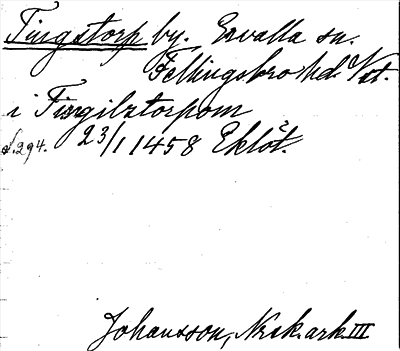 Tingstorp by. Ervalla sn.
Fellingsbro hd. V st.
i Tingilztorpom
s. 294. 23/1 1458 Eklöt.
Johansson, Norskark III